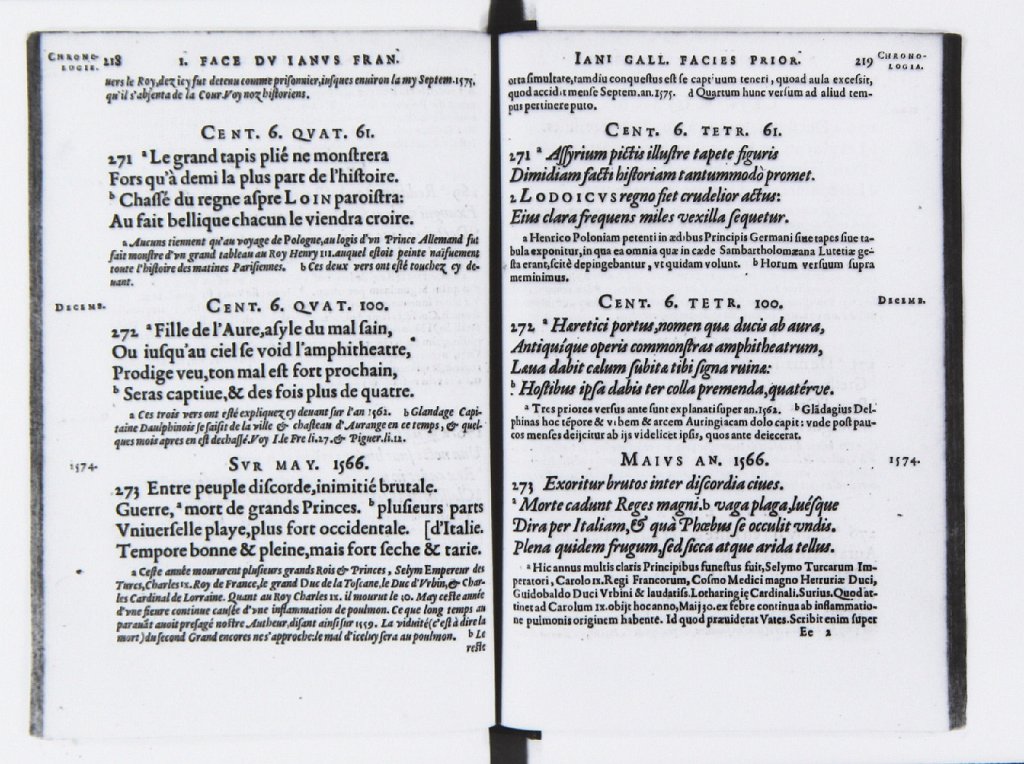 CHRONO-
LOGIE.
218
I. FACE DV IANVS FRAN.
uers le Roy, dez icy fut detenu comme prisonnier, iusques enuiron la my Septem. 1575,
qu'il s'absenta de la Cour. Voy noz historiens.
CENT. 6. QVAT. 61.
271 a Le grand tapis plié ne monstrera
Fors qu'à demi la plus part de l'histoire.
b Chassé du regne aspre LOIN paroistra:
Au fait bellique chacun le viendra croire.
a Aucuns tiennent qu'au voyage de Pologne, au logis d'vn Prince Allemand fut
fait monstre d'vn grand tableau au Roy Henry III. auquel estoit peinte naïfuement
toute l'histoire des matines Parisiennes. b Ces deux vers ont esté touchez cy de-
uant.
DECEMB.
CENT. 6. QVAT. 100.
272 a Fille de l'Aure, asyle du mal sain,
Ou iusqu'au ciel se void l'amphitheatre,
Prodige veu, ton mal est fort prochain,
b Seras captiue, & des fois plus de quatre.
a Ces trois vers ont esté expliquez cy deuant sur l'an 1562. b Glandage Capi-
taine Dauphinois se saisit de la ville & chasteau d'Aurange en ce temps, & quel-
ques mois apres en est dechassé. Voy I. le Fre li. 27. & Piguer. li. 12.
1574.
SVR MAY. 1566.
273 Entre peuple discorde, inimitié brutale.
Guerre, a mort de grands Princes. b plusieurs parts
Vniuerselle playe, plus fort occidentale. [d'Italie.
Tempore bonne & pleine, mais fort seche & tarie.
a Ceste année moururent plusieurs grands Rois & Princes, Selym Empereur des
Turcs, Charles IX. Roy de France, le grand Duc de la Toscane, le Duc d'Vrbin, & Char-
les Cardinal de Lorraine. Quant au Roy Charles IX. il mourut le 30. May ceste année
d'vne fieure continue causée d'vne inflammation de poulmon. Ce que long temps au
parauāt auoit presagé nostre Autheur, disant ainsi sur 1559. La viduité (c'est à dire la
mort) du second Grand encores ne s'approche: le mal d'iceluy sera au poulmon. b Le
reste
IANI GALL. FACIES PRIOR.
219
CHRONO-
LOGIA.
orta simultate, tamdiu conquestus est se captiuum teneri, quoad aula excessit,
quod accidit mense Septem. an. 1575. d Quartum hunc versum ad aliud tem-
pus pertinere puto.
CENT. 6. TETR. 61.
271 a Assyrium pictis illustre tapete figuris
Dimidiam facti historiam tantummodò promet.
2 LODOICVS regno fiet crudelior actus:
Eius clara frequens miles vexilla sequetur.
a Henrico Poloniam petenti in ædibus Principis Germani siue tapes siue ta-
bula exponitur, in qua ea omnia quæ in cæde Sambartholomæana Lutetiæ ge-
sta erant, scitè depingebantur, vt quidam volunt. b Horum versuum supra
meminimus.
CENT. 6. TETR. 100.
DECEMB.
272 a Hæretici portus, nomen quæ ducis ab aura,
Antiquíque operis commonstras amphitheatrum,
Læua dabit cælum subita tibi signa ruina:
b Hostibus ipsa dabis ter colla premenda, quatérve.
a Tres priores versus ante sunt explanati super an. 1562. b Glādagius Del-
phinas hoc tēpore & vrbem & arcem Auringiacam dolo capit: vnde post pau-
cos menses deijcitur ab ijs videlicet ipsis, quos ante deiecerat.
MAIVS AN. 1566.
1574.
273 Exoritur brutos inter discordia ciues.
a Morte cadunt Reges magni. b vaga plaga, luésque
Dira per Italiam, & quà Phœbus se occulit vndis.
Plena quidem frugum, sed sicca atque arida tellus.
a Hic annus multis claris Principibus funestus fuit, Selymo Turcarum Im-
peratori, Carolo IX. Regi Francorum, Cosmo Medici magno Hetruriæ Duci,
Guidobaldo Duci Vrbini & laudatiss. Lotharingię Cardinali. Surius. Quod at-
tinet ad Carolum IX. obijt hoc anno, Maij 30. ex febre continua ab inflammatio-
ne pulmonis originem habente. Id quod præuiderat Vates. Scribit enim super
Ee 2